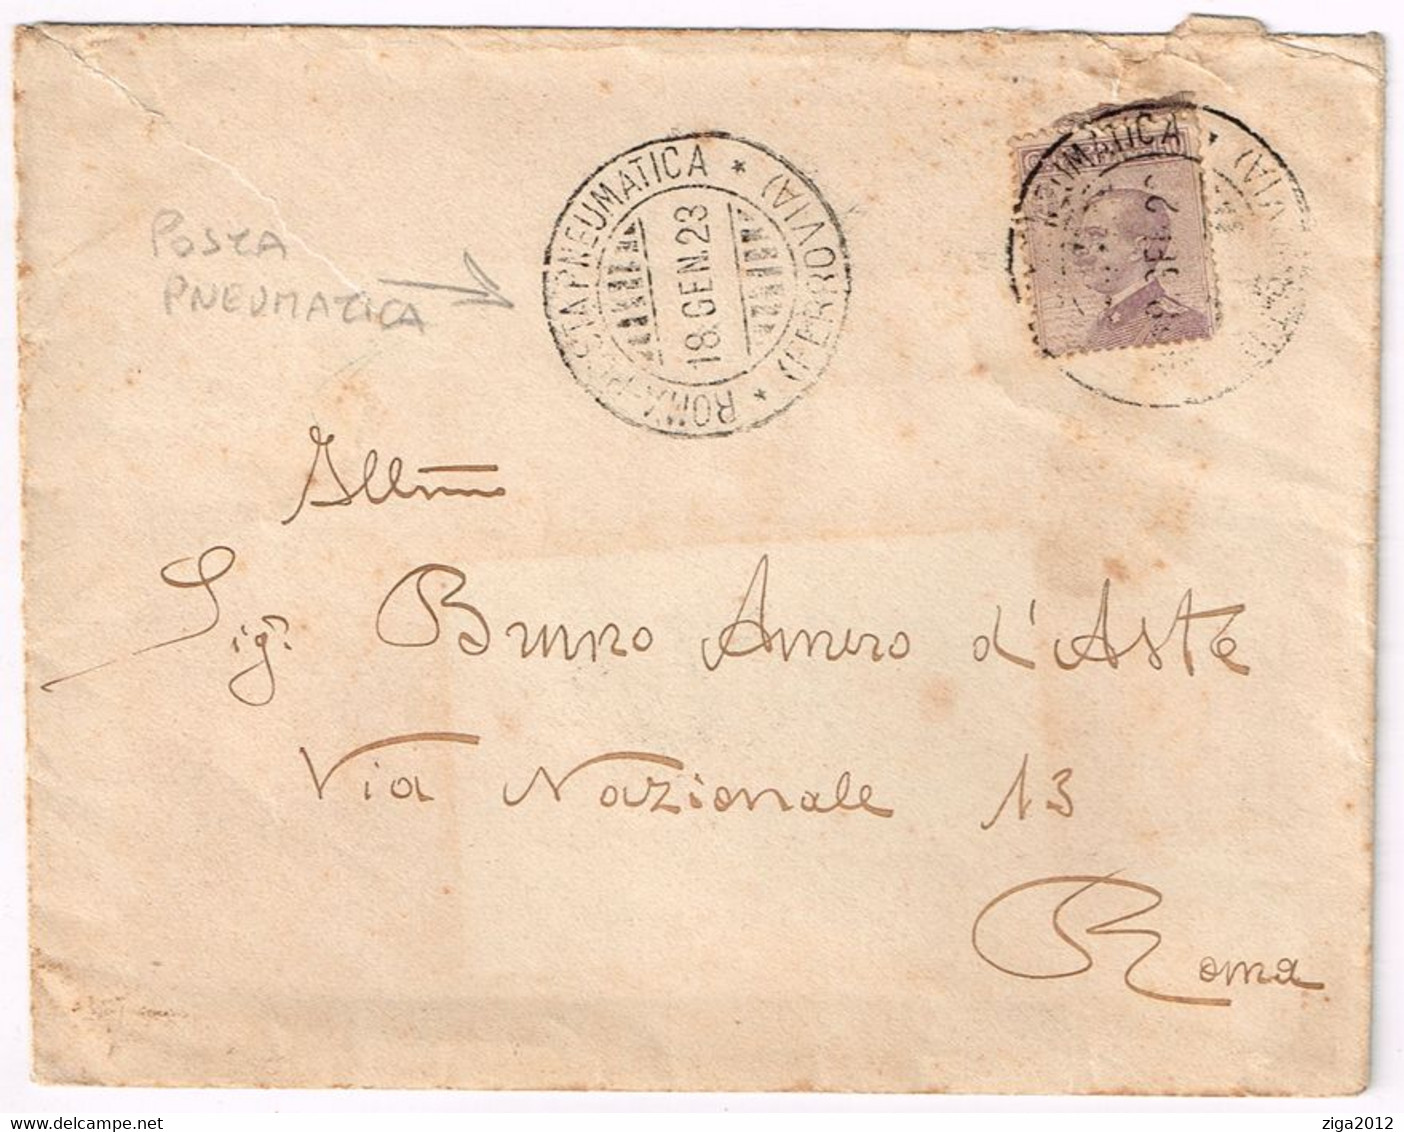 POSTA
PNEUMATICA
ROMA-POSTA PNEUMATICA * (FERROVIA) *
18.GEN.23
Illmo
Sig. Bruno Amero d'Aste
Via Nazionale 13
Roma
www.delcampe.net
ziga2012